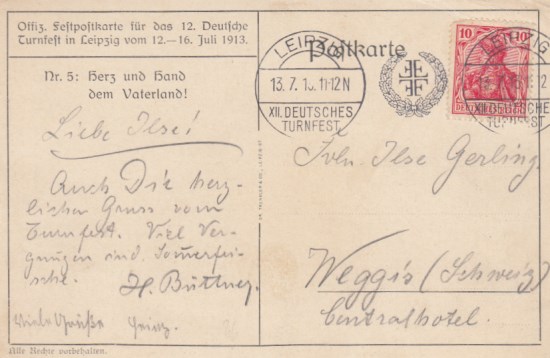 Offiz. Festpostkarte für das 12. Deutsche
Turnfest in Leipzig vom 12.—16. Juli 1913.
Nr. 5: Herz und Hand
dem Vaterland!
Liebe Ilse!
Auch Dir herz-
lichen Gruss vom
Turnfest. Viel Ver-
gnügen und
H. Büttner
Viele Grüße
Alle Rechte vorbehalten.
Postkarte
LEIPZIG
13.7.13.11-12N
XII. DEUTSCHES
TURNFEST
10 10
LEIPZIG
XII. DEUTSCHES
TURNFEST
Frln. Ilse Gerling.
Weggis (Schweiz)
Centralhotel.